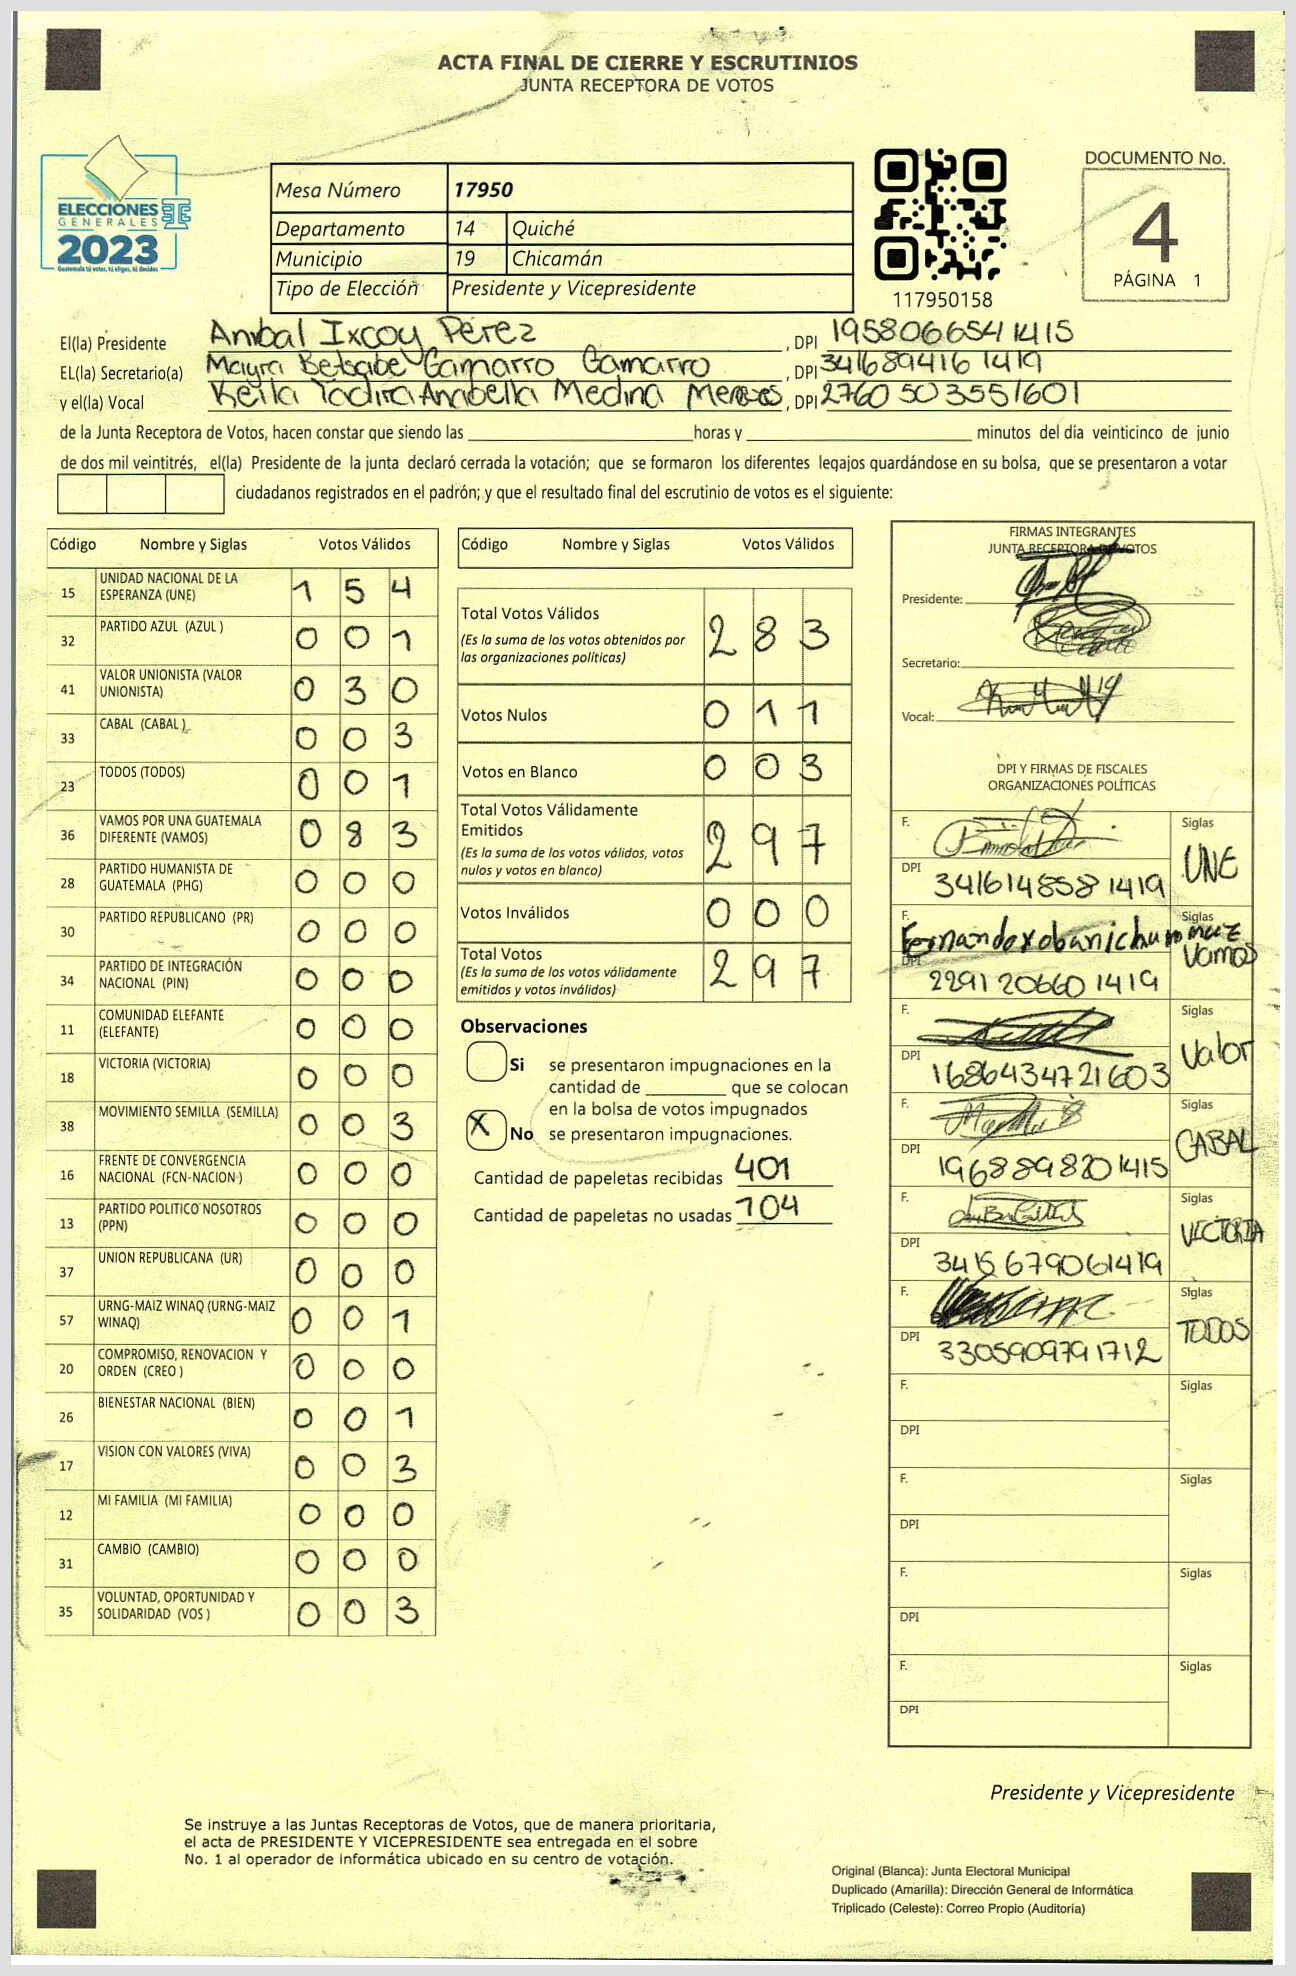 ACTA FINAL DE CIERRE Y ESCRUTINIOS
JUNTA RECEPTORA DE VOTOS
ELECCIONES
GENERALES
2023
Guatemala tú votas, tú eliges, tú decides
Mesa Número 17950
Departamento 14 Quiché
Municipio 19 Chicamán
Tipo de Elección Presidente y Vicepresidente
117950158
DOCUMENTO No.
4
PÁGINA 1
El(la) Presidente Anibal Ixcoy Pérez, DPI 1958066541415
EL(la) Secretario(a) Mayra Betsabe Gamarro Gamarro, DPI 3416894161419
y el(la) Vocal Keila Yadira Anabella Medina, DPI 2760503551601
de la Junta Receptora de Votos, hacen constar que siendo las horas y minutos del día veinticinco de junio
de dos mil veintitrés, el(la) Presidente de la junta declaró cerrada la votación; que se formaron los diferentes legajos guardándose en su bolsa, que se presentaron a votar
ciudadanos registrados en el padrón; y que el resultado final del escrutinio de votos es el siguiente:
Código Nombre y Siglas Votos Válidos
15 UNIDAD NACIONAL DE LA ESPERANZA (UNE) 1 5 4
32 PARTIDO AZUL (AZUL ) 0 0 1
41 VALOR UNIONISTA (VALOR UNIONISTA) 0 3 0
33 CABAL (CABAL ) 0 0 3
23 TODOS (TODOS) 0 0 1
36 VAMOS POR UNA GUATEMALA DIFERENTE (VAMOS) 0 8 3
28 PARTIDO HUMANISTA DE GUATEMALA (PHG) 0 0 0
30 PARTIDO REPUBLICANO (PR) 0 0 0
34 PARTIDO DE INTEGRACIÓN NACIONAL (PIN) 0 0 0
11 COMUNIDAD ELEFANTE (ELEFANTE) 0 0 0
18 VICTORIA (VICTORIA) 0 0 0
38 MOVIMIENTO SEMILLA (SEMILLA) 0 0 3
16 FRENTE DE CONVERGENCIA NACIONAL (FCN-NACION ) 0 0 0
13 PARTIDO POLITICO NOSOTROS (PPN) 0 0 0
37 UNION REPUBLICANA (UR) 0 0 0
57 URNG-MAIZ WINAQ (URNG-MAIZ WINAQ) 0 0 1
20 COMPROMISO, RENOVACION Y ORDEN (CREO ) 0 0 0
26 BIENESTAR NACIONAL (BIEN) 0 0 1
17 VISION CON VALORES (VIVA) 0 0 3
12 MI FAMILIA (MI FAMILIA) 0 0 0
31 CAMBIO (CAMBIO) 0 0 0
35 VOLUNTAD, OPORTUNIDAD Y SOLIDARIDAD (VOS ) 0 0 3
Código Nombre y Siglas Votos Válidos
Total Votos Válidos 2 8 3
(Es la suma de los votos obtenidos por
las organizaciones políticas)
Votos Nulos 0 1 1
Votos en Blanco 0 0 3
Total Votos Válidamente
Emitidos 2 9 7
(Es la suma de los votos válidos, votos
nulos y votos en blanco)
Votos Inválidos 0 0 0
Total Votos 2 9 7
(Es la suma de los votos válidamente
emitidos y votos inválidos)
Observaciones
Si se presentaron impugnaciones en la
cantidad de que se colocan
en la bolsa de votos impugnados
X No se presentaron impugnaciones.
Cantidad de papeletas recibidas 401
Cantidad de papeletas no usadas 104
FIRMAS INTEGRANTES
JUNTA RECEPTORA DE VOTOS
Presidente:
Secretario:
Vocal:
DPI Y FIRMAS DE FISCALES
ORGANIZACIONES POLÍTICAS
F. Siglas UNE
DPI 3416148581419
F. Fernando Siglas Vamos
DPI 2291206601419
F. Siglas Valor
DPI 1686434721603
F. Siglas CABAL
DPI 1968898201415
F. Siglas VICTORIA
DPI 3415679061419
F. Siglas TODOS
DPI 3305909791712
F. Siglas
DPI
F. Siglas
DPI
F. Siglas
DPI
F. Siglas
DPI
Presidente y Vicepresidente
Se instruye a las Juntas Receptoras de Votos, que de manera prioritaria,
el acta de PRESIDENTE Y VICEPRESIDENTE sea entregada en el sobre
No. 1 al operador de informática ubicado en su centro de votación.
Original (Blanca): Junta Electoral Municipal
Duplicado (Amarilla): Dirección General de Informática
Triplicado (Celeste): Correo Propio (Auditoría)